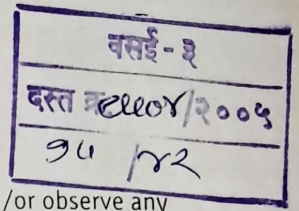 वसई - ३
दस्त क्र /२००५
१५ /४२
/or observe any